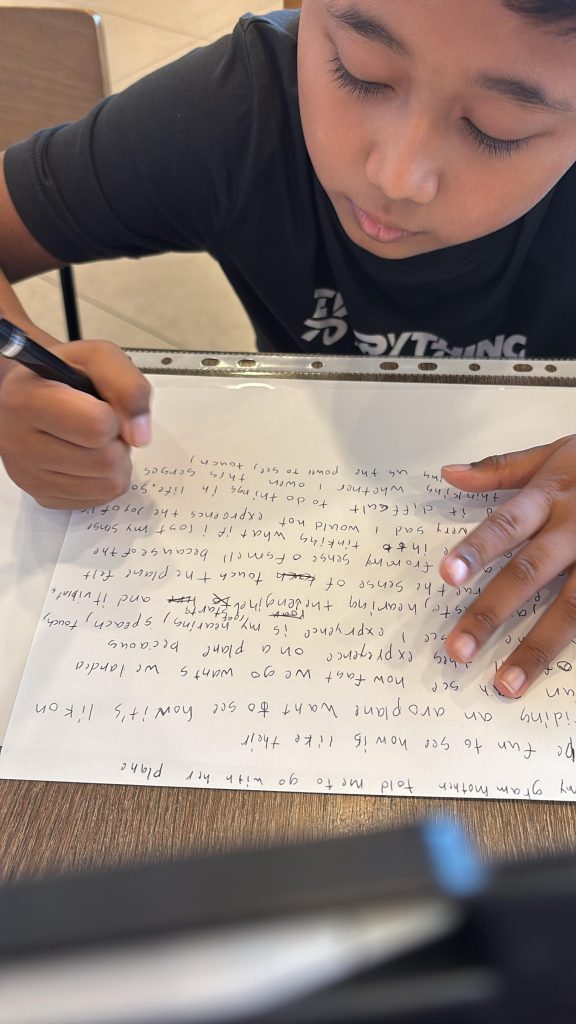 my gram mother told me to go with her plane
be fun to see how is like their
riding an aroplane want to see how it's lik on
see how fast we go wants we landed
expreyence on a plane becaous
see I expryence is my hearing, speach, touch,
hearing the enginel starts and it vibrat's
the sense of touch the plane felt
from my sense of smell because of the
tinking what if i lost my sense
very sad I would not exprerences the joy of
it difficult to do things in life, so
thinking whether I own this senses
us the power to see, touch,